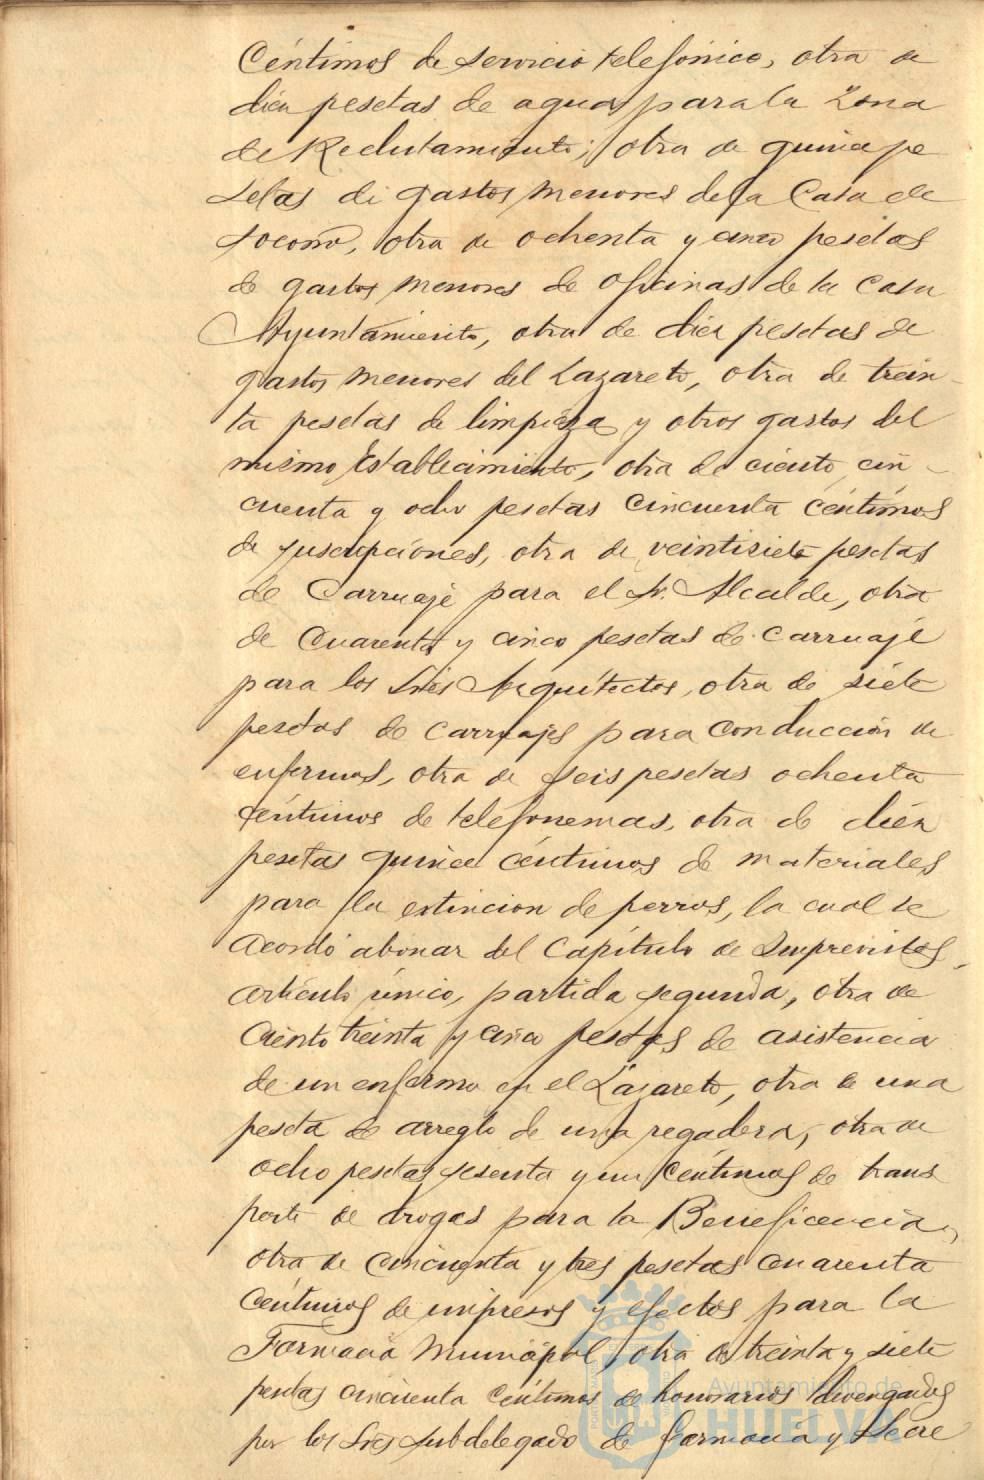 Céntimos de servicio telefónico, otra de
diez pesetas de agua para la Zona
de Reclutamiento; otra de quince pe
setas de gastos menores de la Casa de
socorro, otra de ochenta y cinco pesetas
de gastos menores de oficinas de la Casa
Ayuntamiento, otra de diez pesetas de
gastos menores del Lazareto, otra de trein-
ta pesetas de limpieza y otros gastos del
mismo Establecimiento, otra de ciento cin-
cuenta y ocho pesetas cincuenta céntimos
de suscripciones, otra de veintisiete pesetas
de Carruaje para el Sr. Alcalde, otra
de Cuarenta y cinco pesetas de carruaje
para los Sres Arquitectos, otra de siete
pesetas de carruajes para conducción de
enfermos, otra de seis pesetas ochenta
céntimos de telefonemas, otra de diez
pesetas quince céntimos de materiales
para la extincion de perros, la cual se
acordó abonar del Capítulo de Imprevistos,
artículo único, partida segunda, otra de
Ciento treinta y cinco pesetas de asistencia
de un enfermo en el Lazareto, otra de una
peseta de arreglo de una regadera, otra de
ocho pesetas sesenta y un céntimos de trans
porte de drogas para la Beneficencia,
otra de cincuenta y tres pesetas cuarenta
céntimos de impresos y efectos para la
Farmacia Municipal, otra de treinta y siete
pesetas cincuenta céntimos de honorarios devengados
por los Sres Subdelegado de farmacia y Secre
Ayuntamiento de
HUELVA